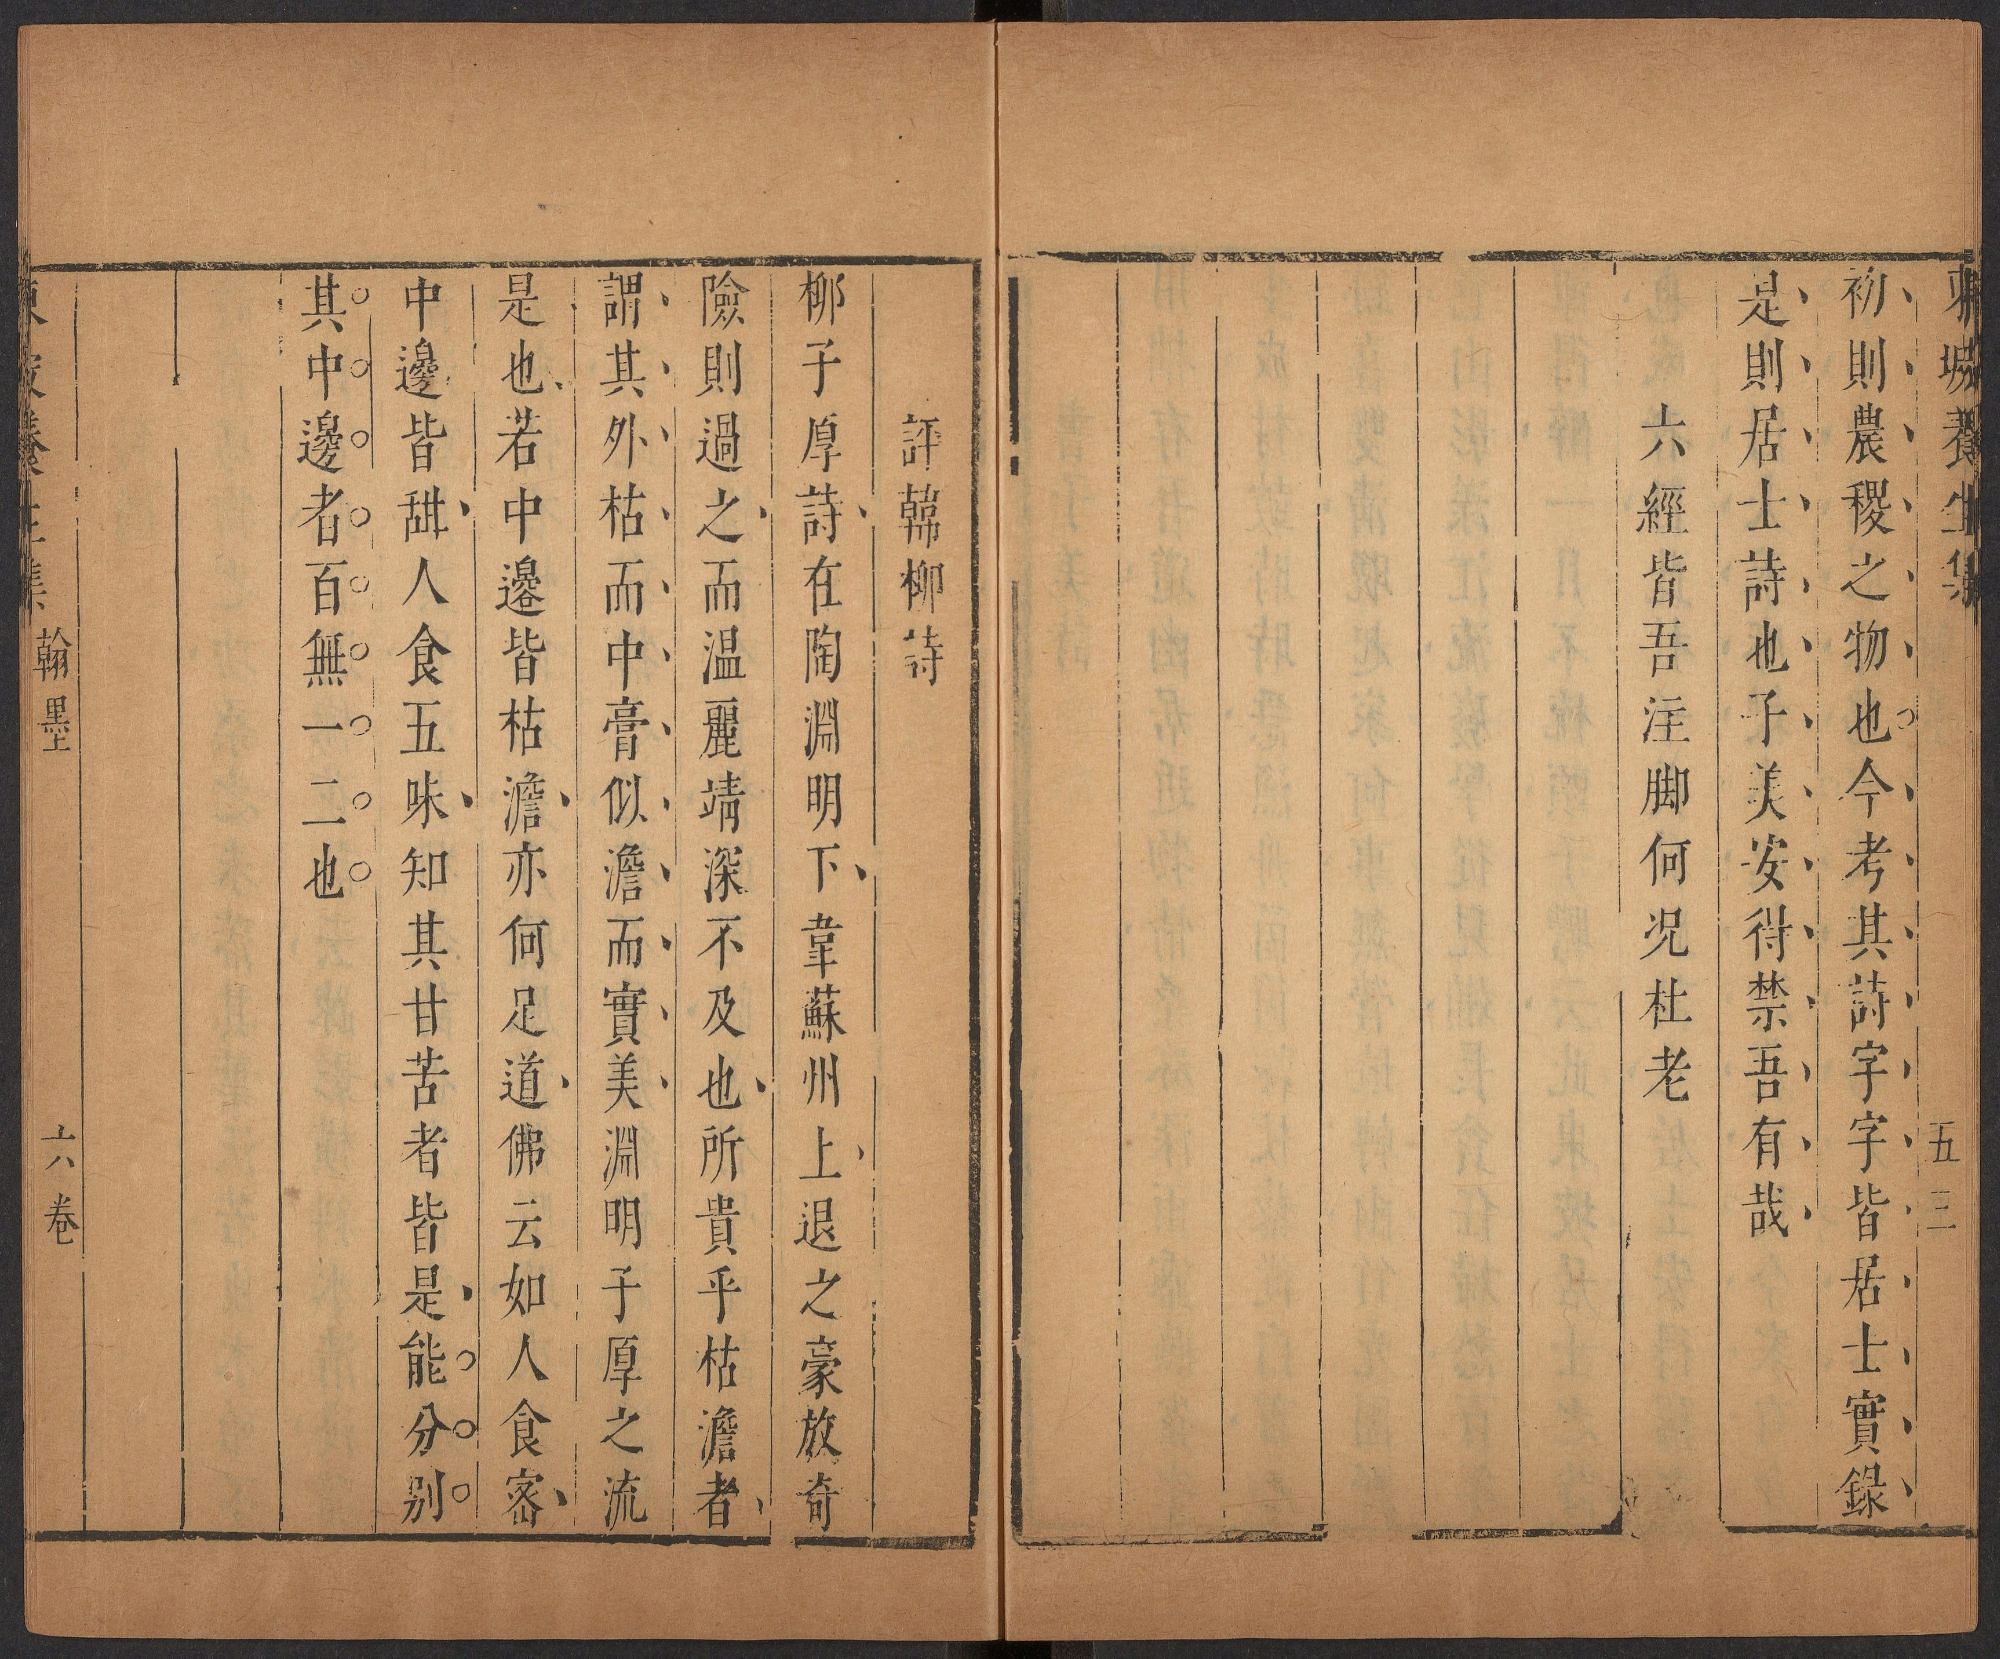 東坡養生集
五三
初則農稷之物也今考其詩字字皆居士實錄
是則居士詩也子美安得禁吾有哉
六經皆吾注脚何况杜老
評韓柳詩
柳子厚詩在陶淵明下韋蘇州上退之豪放奇
險則過之而温麗靖深不及也所貴乎枯澹者
謂其外枯而中膏似澹而實美淵明子厚之流
是也若中邊皆枯澹亦何足道佛云如人食宻
中邊皆甜人食五味知其甘苦者皆是能分别
其中邊者百無一二也
東坡養生集
翰墨
六卷